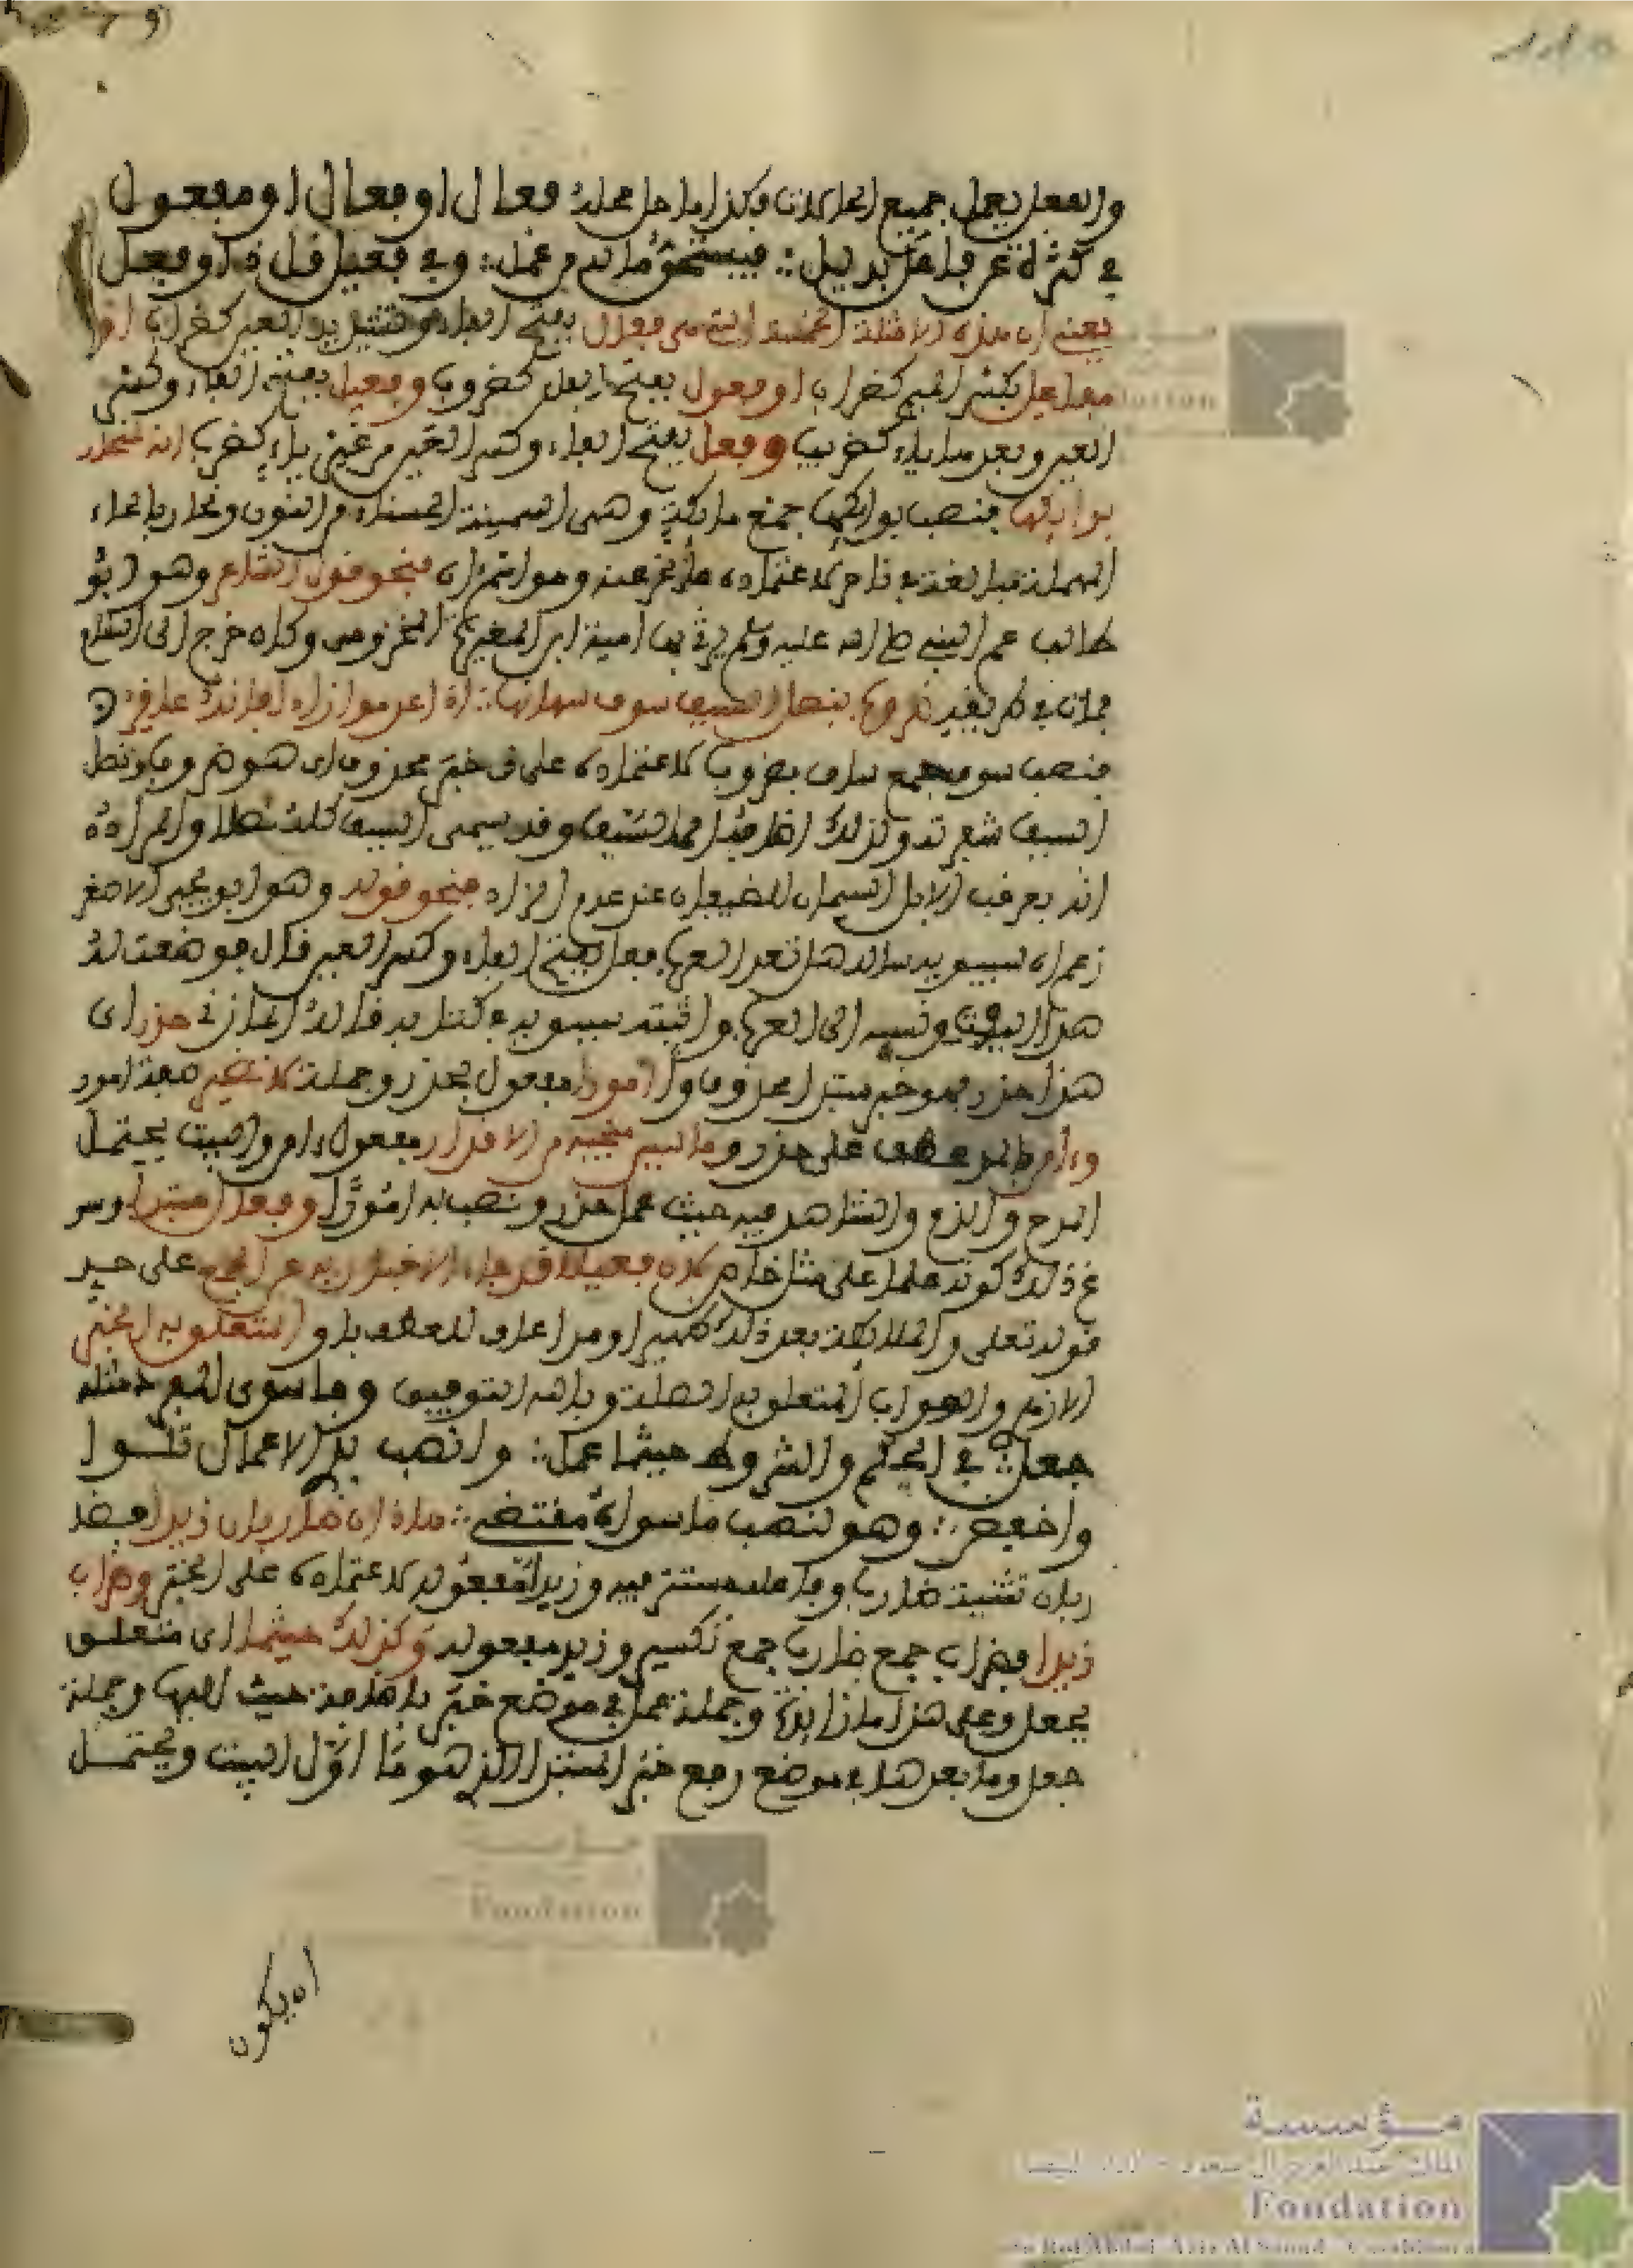 والفعل يعمل جميع الحالات وكذا ما حل محله فعال او مفعال او فعول
في كثرة عن فاعل بديل :. فيستحق ما له من عمل :. وفي فعيل قل ذا وفعل
يعني ان هذه الامثلة الخمسة التي هي فعال بفتح الفاء وتشديد العين كضراب او
مفعال بكسر الميم كمضراب او فعول بفتح الفاء كضروب وفعيل بفتح الفاء وكسر
العين وبعدها ياء كضريب وفعل بفتح الفاء وكسر العين من غير ياء كضرب انه لمنحار
بوائكها فنصب بوائكها جمع بائكة وهي السمينة الحسناء من النوق ومنحار بالحاء
المهملة مبالغة في ناحر لاعتماده على مخبر عنه وهو اسم ان فنحو قول الشاعر وهو ابو
طالب عم النبي صلى الله عليه وسلم يرثي بها امية ابن المغيرة المخزومي وكان خرج الى الشام
فمات في الطريق ضروب بنصل السيف سوق سمانها :. اذا عدموا زادا فانك عاقر
فنصب سوق جمع ساق بضروب لاعتماده على ذي خبر محذوف اي هو ضروب ونصل
السيف شفرته ولذلك اضافه الى السيف وقد يسمى السيف كله نصلا والمراد
انه يعرقب الابل السمان للضيفان عند عدم الزاد فنحو قوله وهو ابو يحيى اللاحقي
زعم ان سيبويه ساله هل تعدي العرب فعل بفتح الفاء وكسر العين قال فوضعت له
هذا البيت ونسبه الى العرب واثبته سيبويه في كتابه قال المازني حذر اي
هذا حذر فهو خبر مبتدا محذوف وامورا مفعول بحذر وجملة لا تضير صفة امور
وءامن عطف على حذر وما ليس منجيه من الاقدار مفعول ءامن والبيت يحتمل
المدح والذم والشاهد فيه حيث عمل حذر ونصب به امورا وفعل مبتدا وسو
غ ذلك كونه علما على مثال خاص لان فعيلا قد جاء الاخبار به عن الجمع على حد
قوله تعلى والملائكة بعد ذلك ظهير او مراعاة للعطف باو المتعلق به الخبر
الازم والصواب المتعلق به الصلة وبالله التوفيق وما سوى المفرد مثله
جعل :. في الحكم والشروط حيثما عمل :. وانصب بذي الاعمال تلوا
واخفض :. وهو لنصب ما سواه مقتضي :. هاذان ضاربان زيدا فضا
ربان تثنية ضارب وفاعله مستتر فيه وزيدا مفعوله لاعتماده على المخبر وضراب
زيدا فضراب جمع ضارب جمع تكسير وزيد مفعوله وكذلك حيثما اي متعلق
بجعل وعلى هذا ما زائدة وجملة عمل في موضع خبر باضافة حيث اليها وجملة
جعل وما بعدها في موضع رفع خبر المبتدا الذي هو ما اول البيت ويحتمل
ان يكون
مؤسسة
Fondation